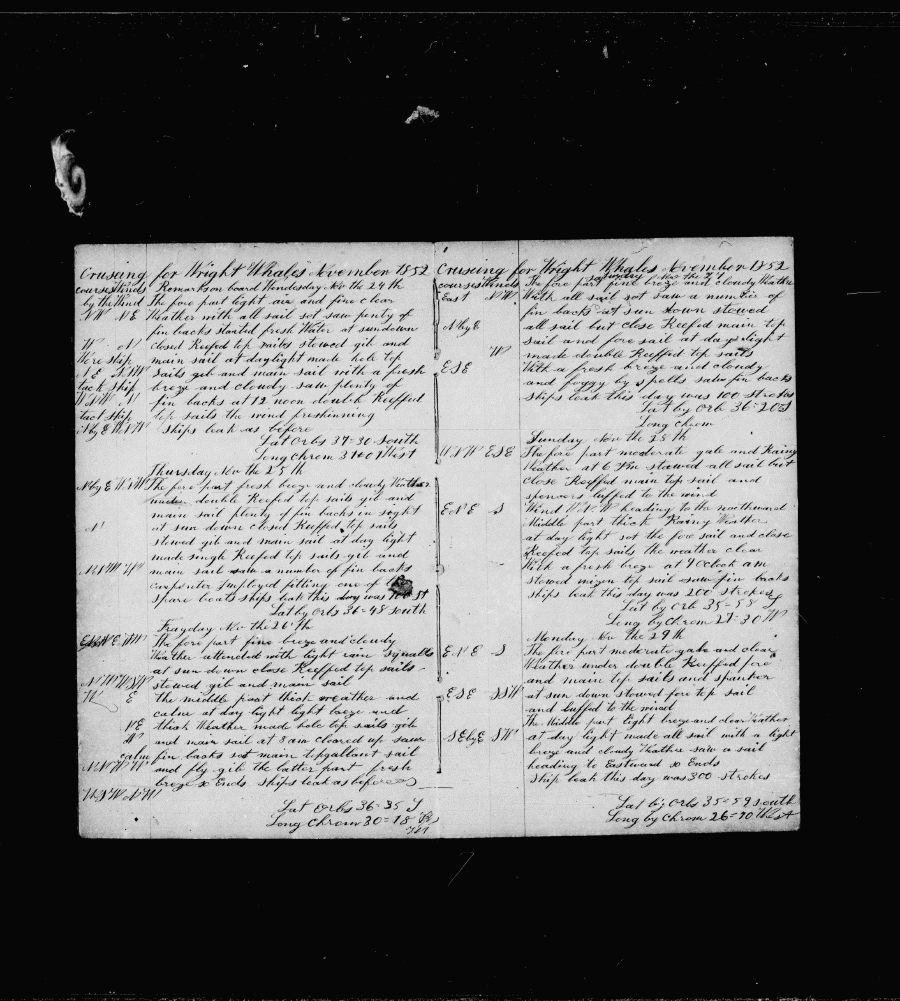 Cruseing for Wright Whales November 1852
courses Winds Remarks on board Wendesday Nov the 24th
by the Wind The fore part light air and fine clear
NW NE Weather with all sail sot saw plenty of
fin backs started fresh Water at sundown
W N closed Reefed top sailes stowed gib and
Wore ship main sail at daylight made hole top
NE NNW sails gib and main sail with a fresh
tack ship breze and cloudy saw plenty of
WNW N fin backs at 12 noon double Reeffed
tact ship top sails the wind freshinning
ships leak as before
Lat Orbs 37=30 South
Long Chrom 31=01 West
Thursday Nov the 25th
NbyE The fore part fresh breze and cloudy Weather
under double Reefed top sails gib and
main sail plenty of fin backs in sight
N at sun down closed Reeffed top sails
stowed gib and main sail at day light
made singh Reefed top sails gib and
NNW W main sail saw a number of fin backs
carpenter Imployed fitting one of the
spare boats ships leak this day was
Lat by Orbs 36=48 South
Frayday Nov the 26th
The fore part fine breze and cloudy
Weather attended with light rain Squalls
at sun down close Reeffed top sails
stowed gib and main sail
W E the middle part thick weather and
calm at day light light breze and
NE thick Weather made hole top sails gib
W and main sail at 8 am cleared up saw
calm fin backs sot main topgallant sail
NNW W and fly gib the latter part fresh
breze x Ends ships leak as before
WSW NW
Lat Orbs 36=35 S
Long Chrom 30=18
Cruseing for Wright Whales November 1852
Saturday Nov the 27
courses Winds The fore part fine breze and cloudy Weather
East NW With all sail sot saw a number of
fin backs at sun down stowed
NbyE all sail but close Reefed main top
sail and fore sail at day light
W made double Reeffed top sails
ESE With a fresh breze and cloudy
and foggy by spells saw fin backs
ships leak this day was 100 strokes
Lat by Orb 36=20 S
Long Chrom
Sunday Nov the 28th
WNW ESE The fore part moderate gale and Rainy
Weather at 6 Pm stowed all sail but
close Reeffed main top sail and
spencers luffed to the wind
ENE S Wind W.N.W heading to the northward
Middle part thick Rainy Weather
at day light sot the fore sail and close
Reefed top sails the weather clear
With a fresh breze at 9 Oclock am
stowed mizen top sail saw fin backs
ships leak this day was 200 strokes
Lat by Orb 35=58 S
Long by chrom 27=30 W
Monday Nov the 29th
ENE S The fore part moderate gale and clear
Weather under double Reeffed fore
and main top sails and spanker
ESE SSW at sun down stowed fore top sail
and luffed to the wind
The Middle part Light breze and clear Weather
SEbyE SW at day light made all sail with a light
breze and cloudy Weather saw a sail
heading to Eastward x Ends
Ship leak this day was 300 strokes
Lat by Orbs 35=59 South
Long by Chrom 26=40 West